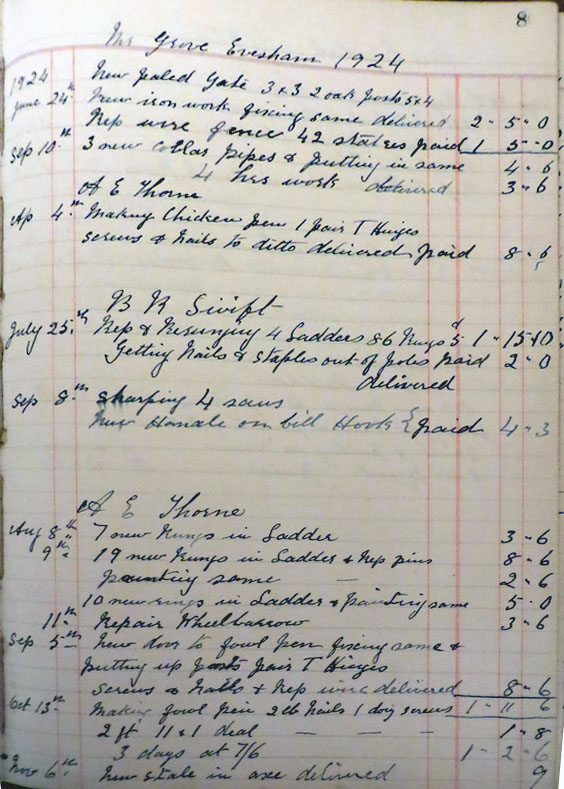 8
Mr Grove Evesham 1924
1924 New paled gate 3 x 3 2 oak posts 5 x 4
June 24th New iron work fixing same delivered 2 " 5 " 0
Rep wire fence 42 staples paid 1 5 " 0
Sep 10th 3 new collar pipes & putting in same 4 " 6
4 hrs work delivered 3 " 6
A E Thorne
Ap 4th Making Chicken pen 1 pair T Hinges
screws & nails to ditto delivered paid 8 " 6
B R Swift
July 25th Rep & Resunging 4 Ladders 86 Rungs 5d 1 " 15 " 10
Getting Nails & staples out of poles paid 2 " 0
delivered
Sep 8th sharping 4 saws
New Handle on bill Hook paid 4 " 3
A E Thorne
Aug 8th 7 new Rungs in Ladder 3 " 6
9th 19 new Rungs in Ladder & Rep pins 8 " 6
painting same — 2 " 6
10 new rungs in Ladder & painting same 5 " 0
11th Repair Wheelbarrow 3 " 6
Sep 5th New door to fowl pen fixing same &
putting up posts pair T Hinges
screws & nails & Rep wire delivered 8 " 6
Oct 13th Making fowl pen 2 lb Nails 1 doz screws 1 " 11 " 6
2 ft 11 x 1 deal — — — 1 " 8
3 days at 7/6 1 " 2 " 6
Nov 6th New stale in axe delivered 9